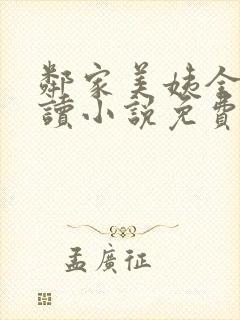 鄰家美姨全
讀小說免費
孟廣征